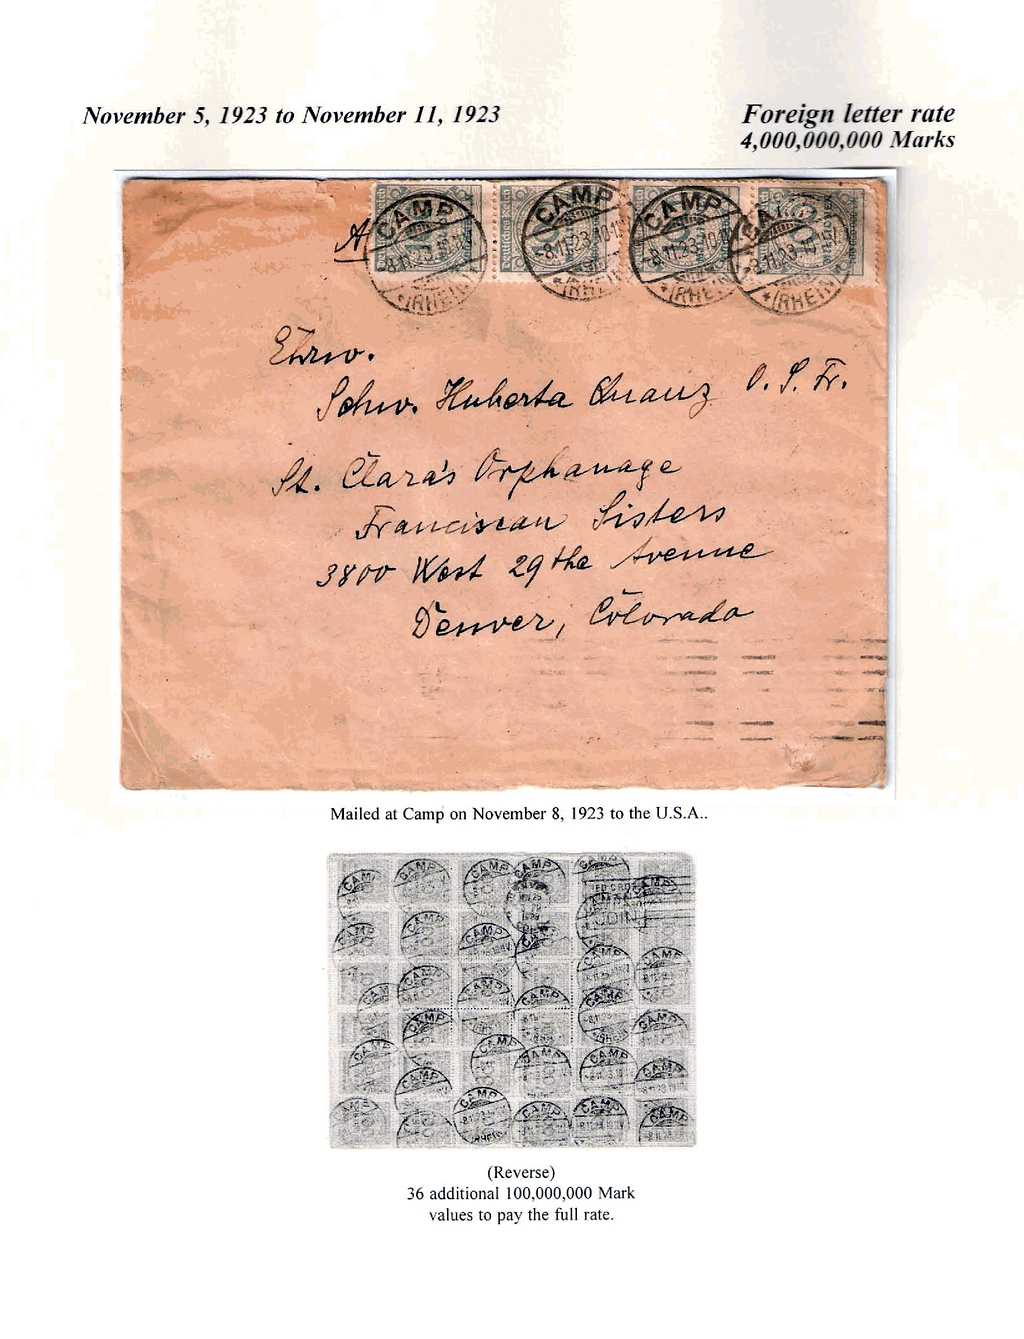 November 5, 1923 to November 11, 1923
Foreign letter rate
4,000,000,000 Marks
CAMP CAMP CAMP CA
-8.11.23.10-11 -8.11.23.10-11 -8.11.23.10-11 -8.11.23
(RHEIN) (RHEIN) (RHEIN) (RHEIN)
Ehrw.
Schw. Huberta Quanz O. S. Fr.
St. Clara's Orphanage
Franciscan Sisters
3800 West 29the Avenue
Denver, Colorado
Mailed at Camp on November 8, 1923 to the U.S.A..
CAMP CAMP CAMP CAMP CAMP
JOIN
(Reverse)
36 additional 100,000,000 Mark
values to pay the full rate.